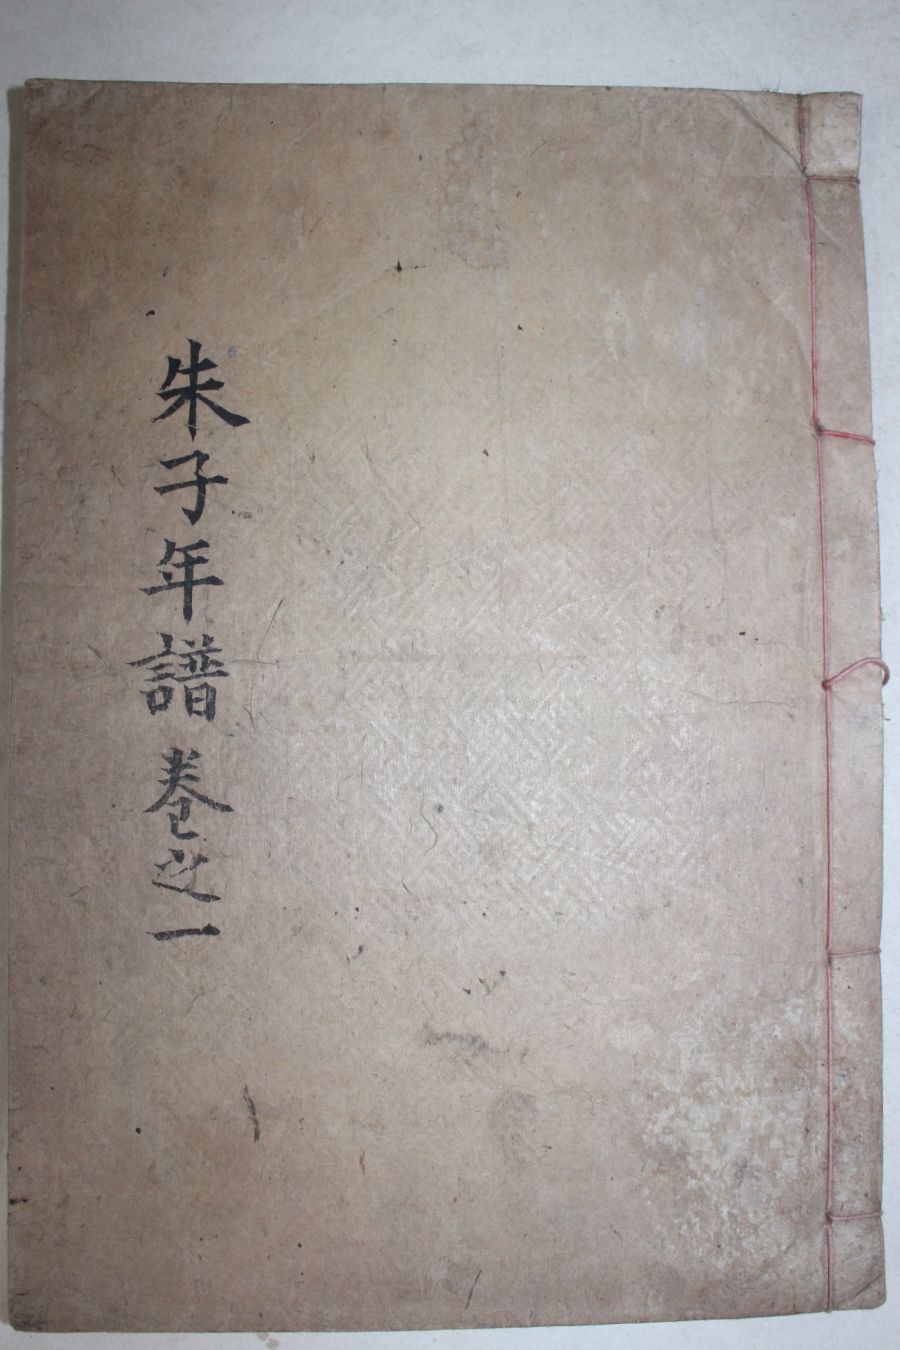 朱子年譜 卷之一